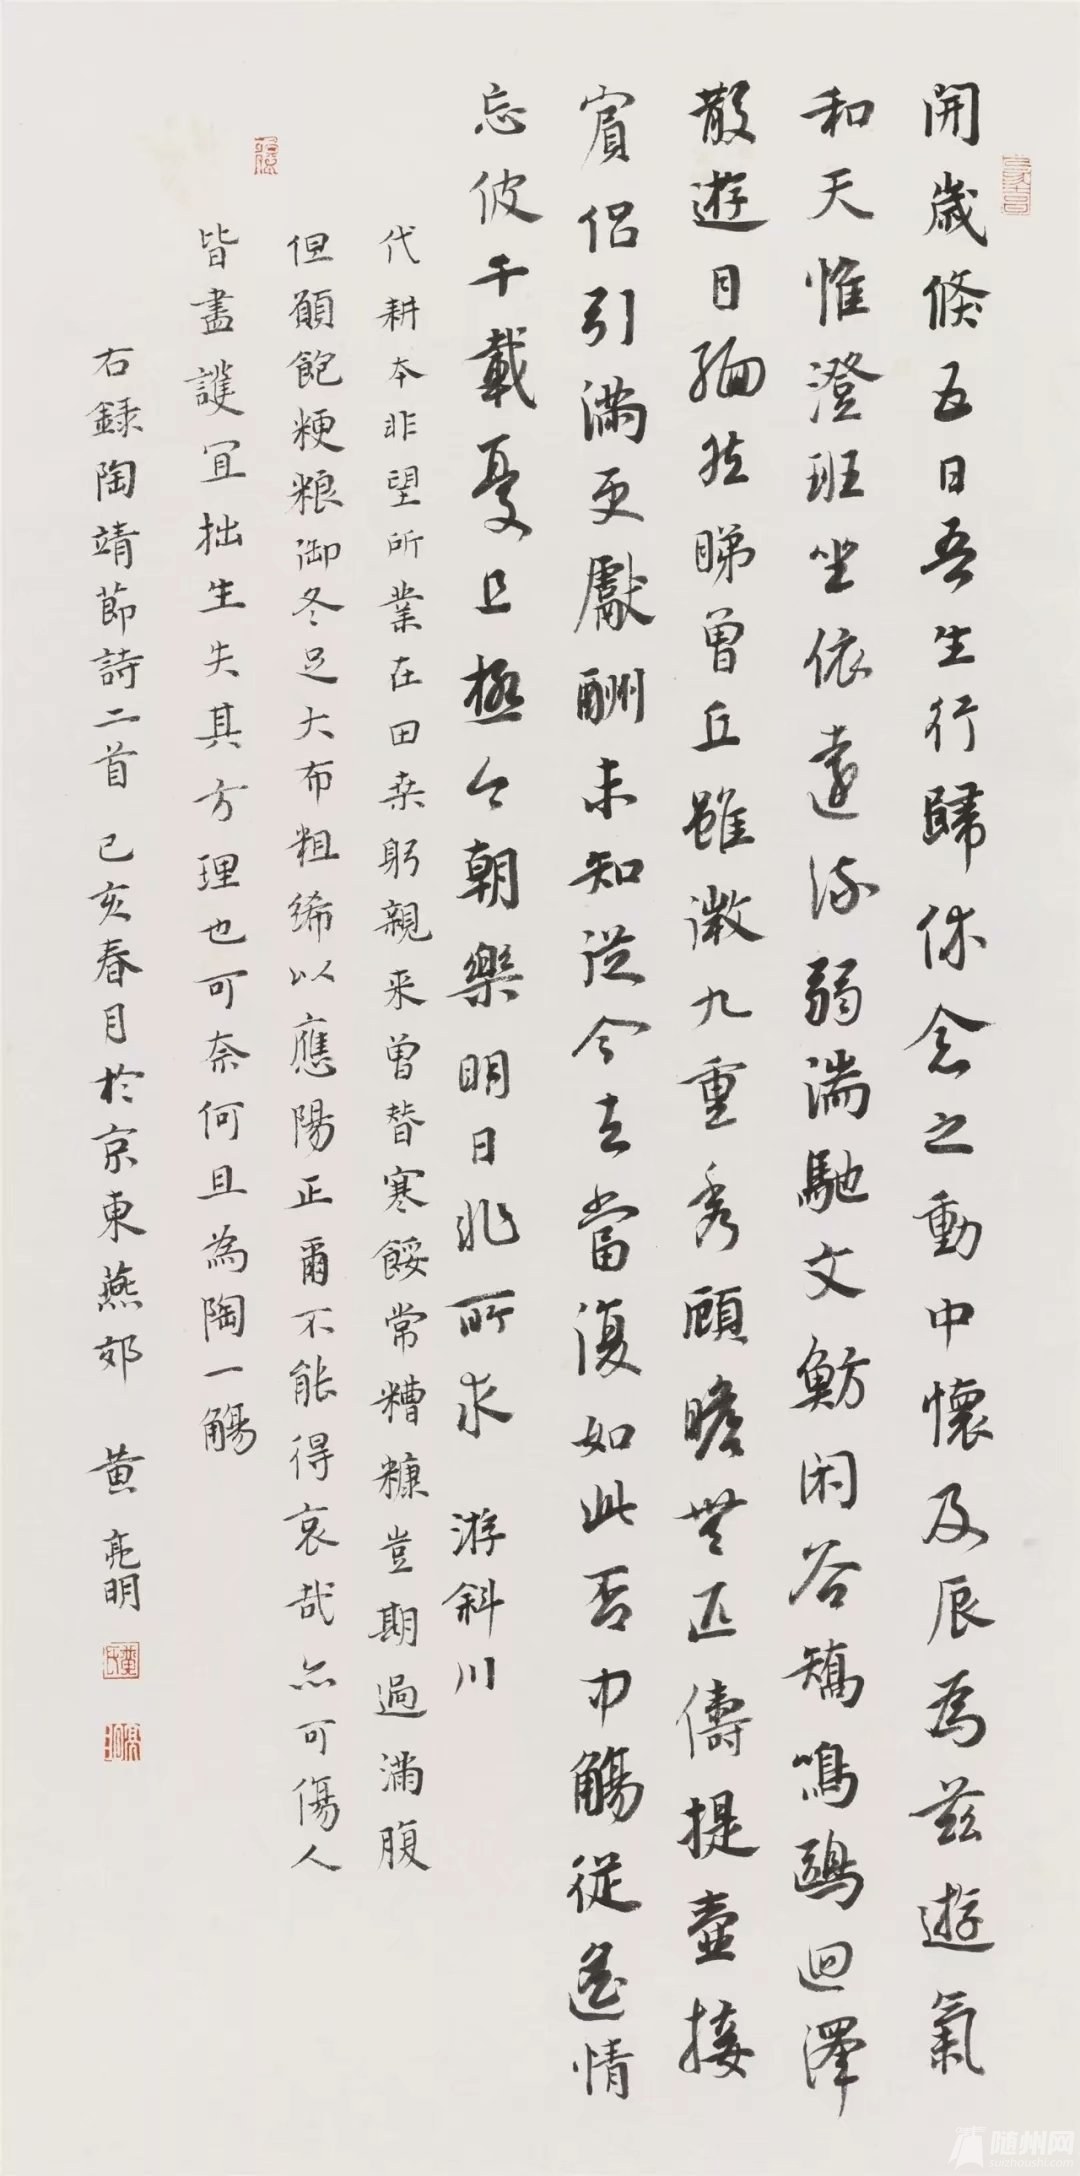 開歲倏五日吾生行歸休念之動中懷及辰為茲遊氣
和天惟澄班坐依遠流弱湍馳文魴閑谷矯鳴鷗迴澤
散遊目緬然睇曾丘雖微九重秀顧瞻無匹儔提壺接
賓侶引滿更獻酬未知從今去當復如此否中觴縱遙情
忘彼千載憂且極今朝樂明日非所求 游斜川
代耕本非望所業在田桑躬親未曾替寒餒常糟糠豈期過滿腹
但願飽粳粮御冬足大布粗絺以應陽正爾不能得哀哉亦可傷人
皆盡護宜拙生失其方理也可奈何且為陶一觴
右録陶靖節詩二首 己亥春月於京東燕郊 黄亮明
随州网
suizhoushi.com